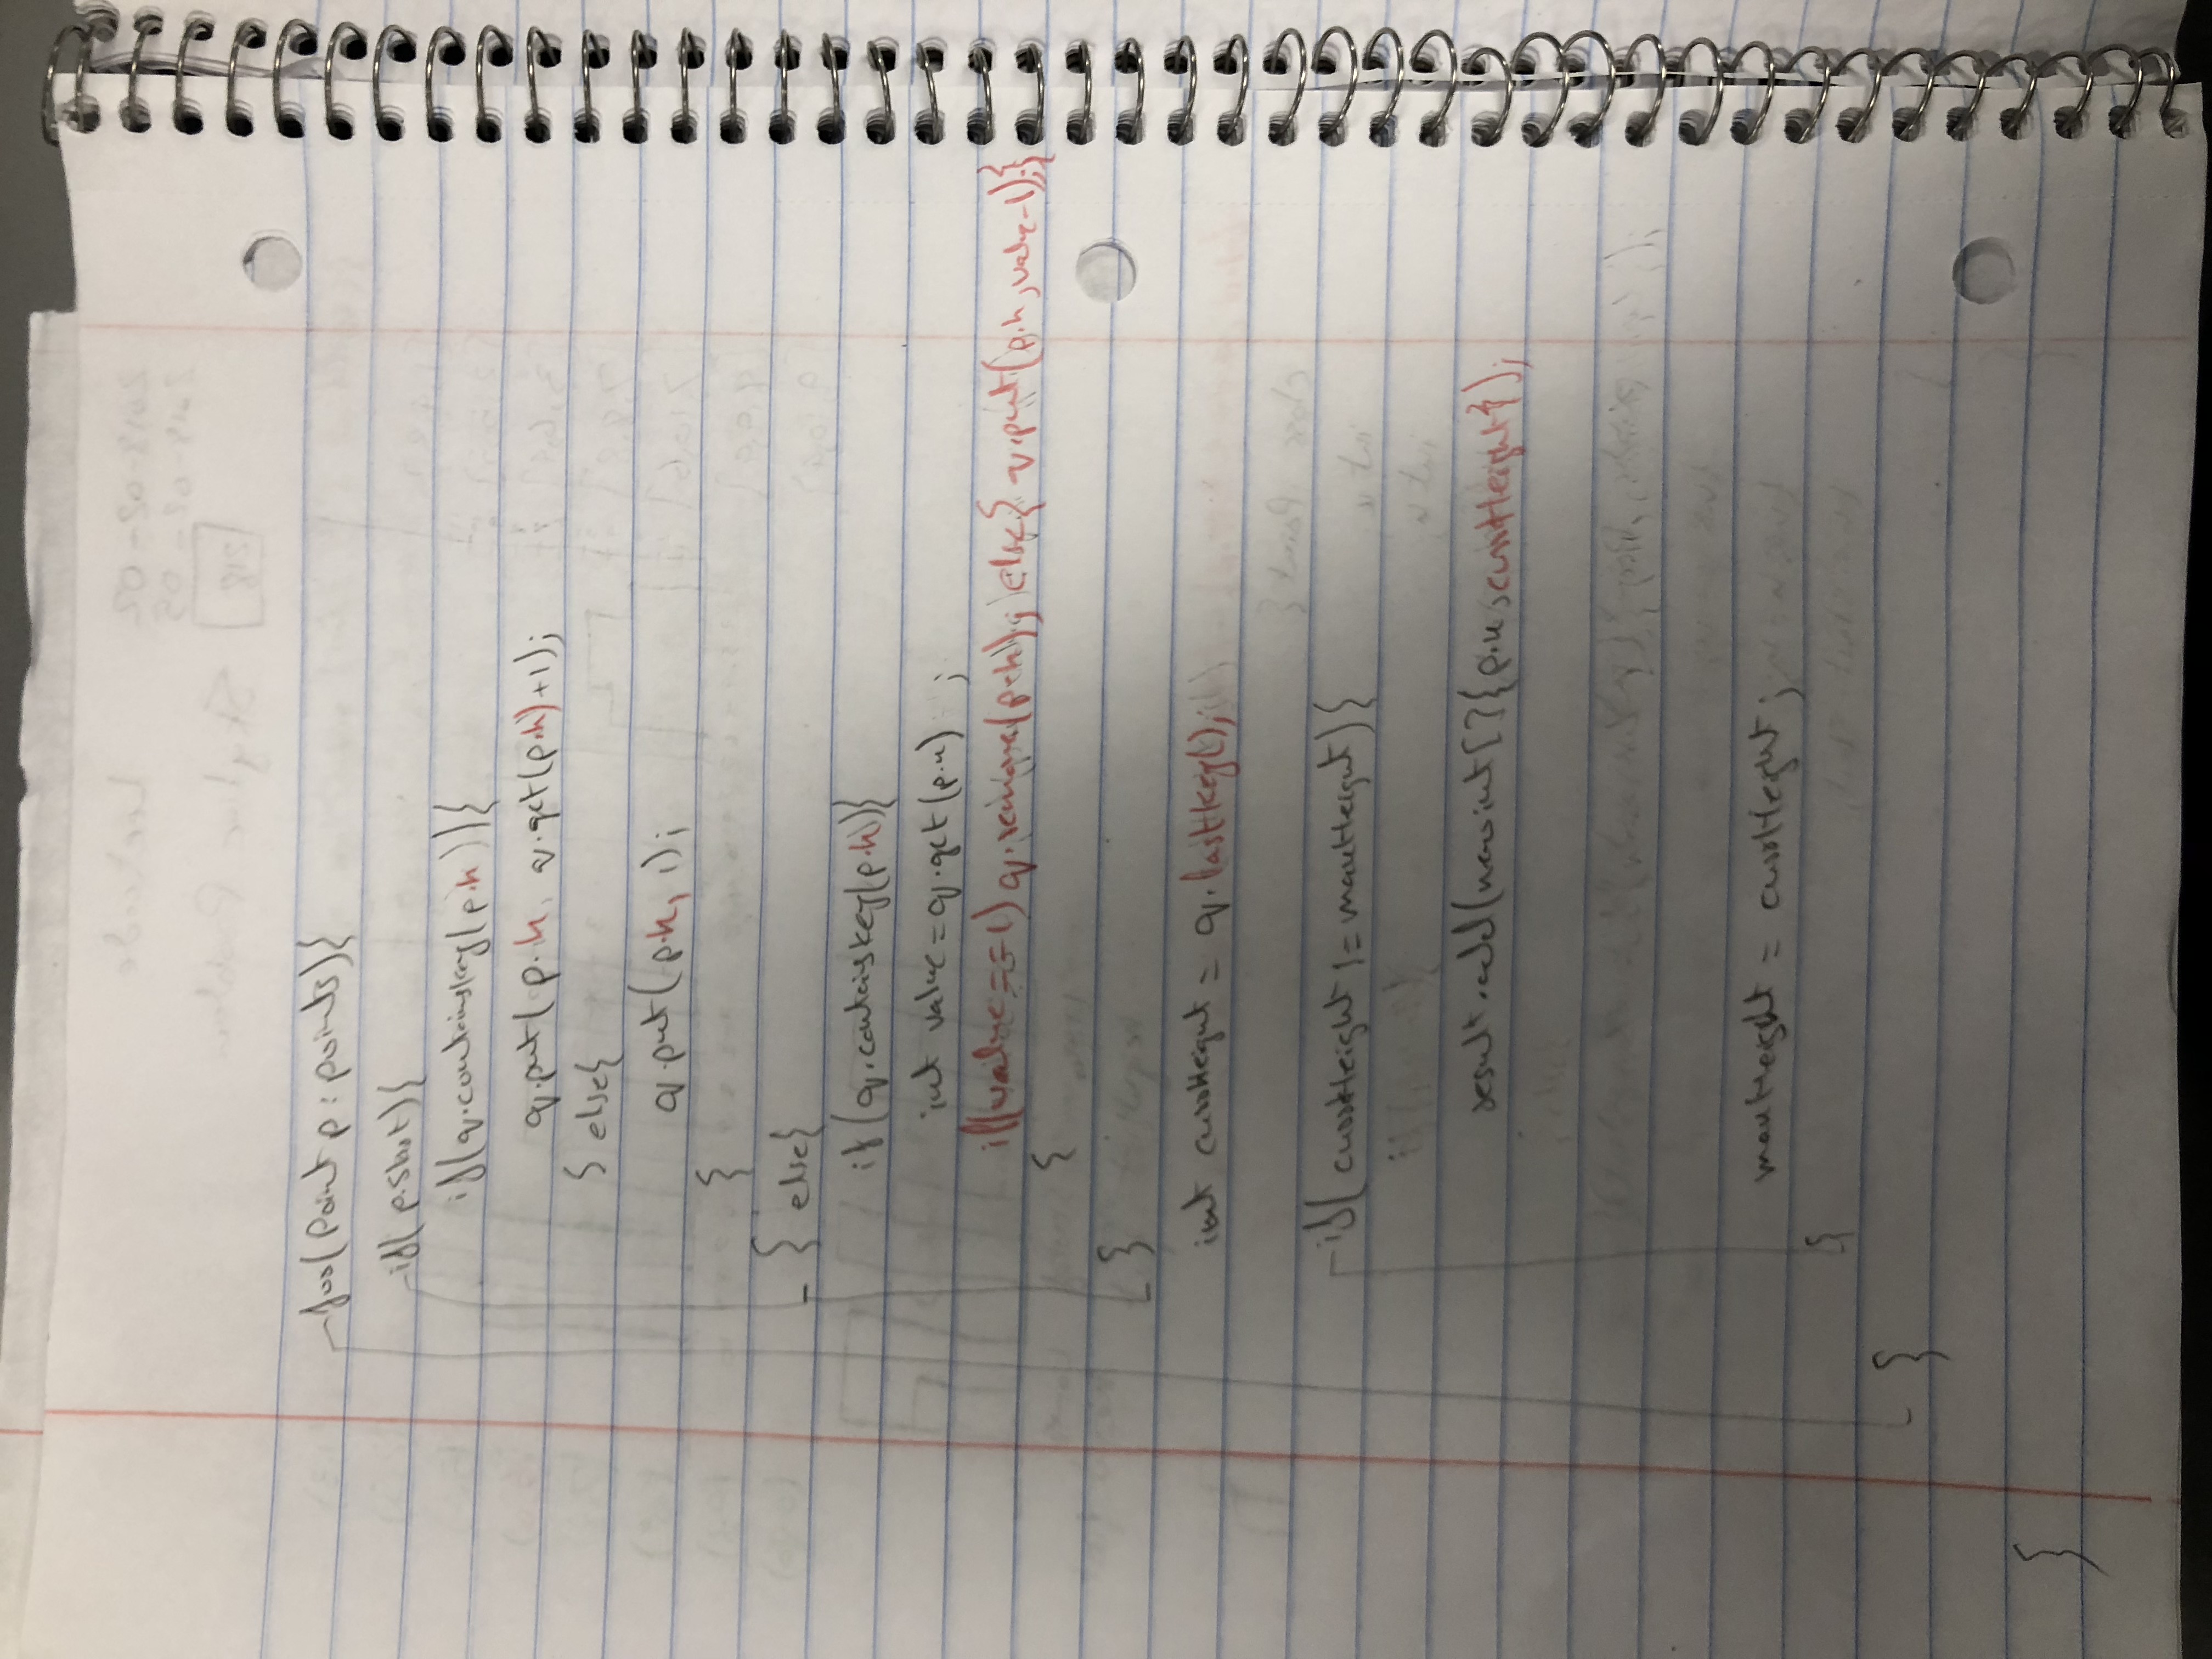 for(Point p : points){
if( p.start){
if(q.containskey(p.h)){
q.put( p.h, q.get(p.h)+1);
} else{
q.put(p.h, 1);
}
} else{
if(q.containskey(p.h)){
int value = q.get(p.h) ;
if(value==1) q.remove(p.h); else{ q.put(p.h,value-1);}
}
}
int currHeight = q.lastkey();
if( currHeight != maxHeight){
result.add(new int[]{p.x,currHeight});
maxHeight = currHeight;
}
}
}